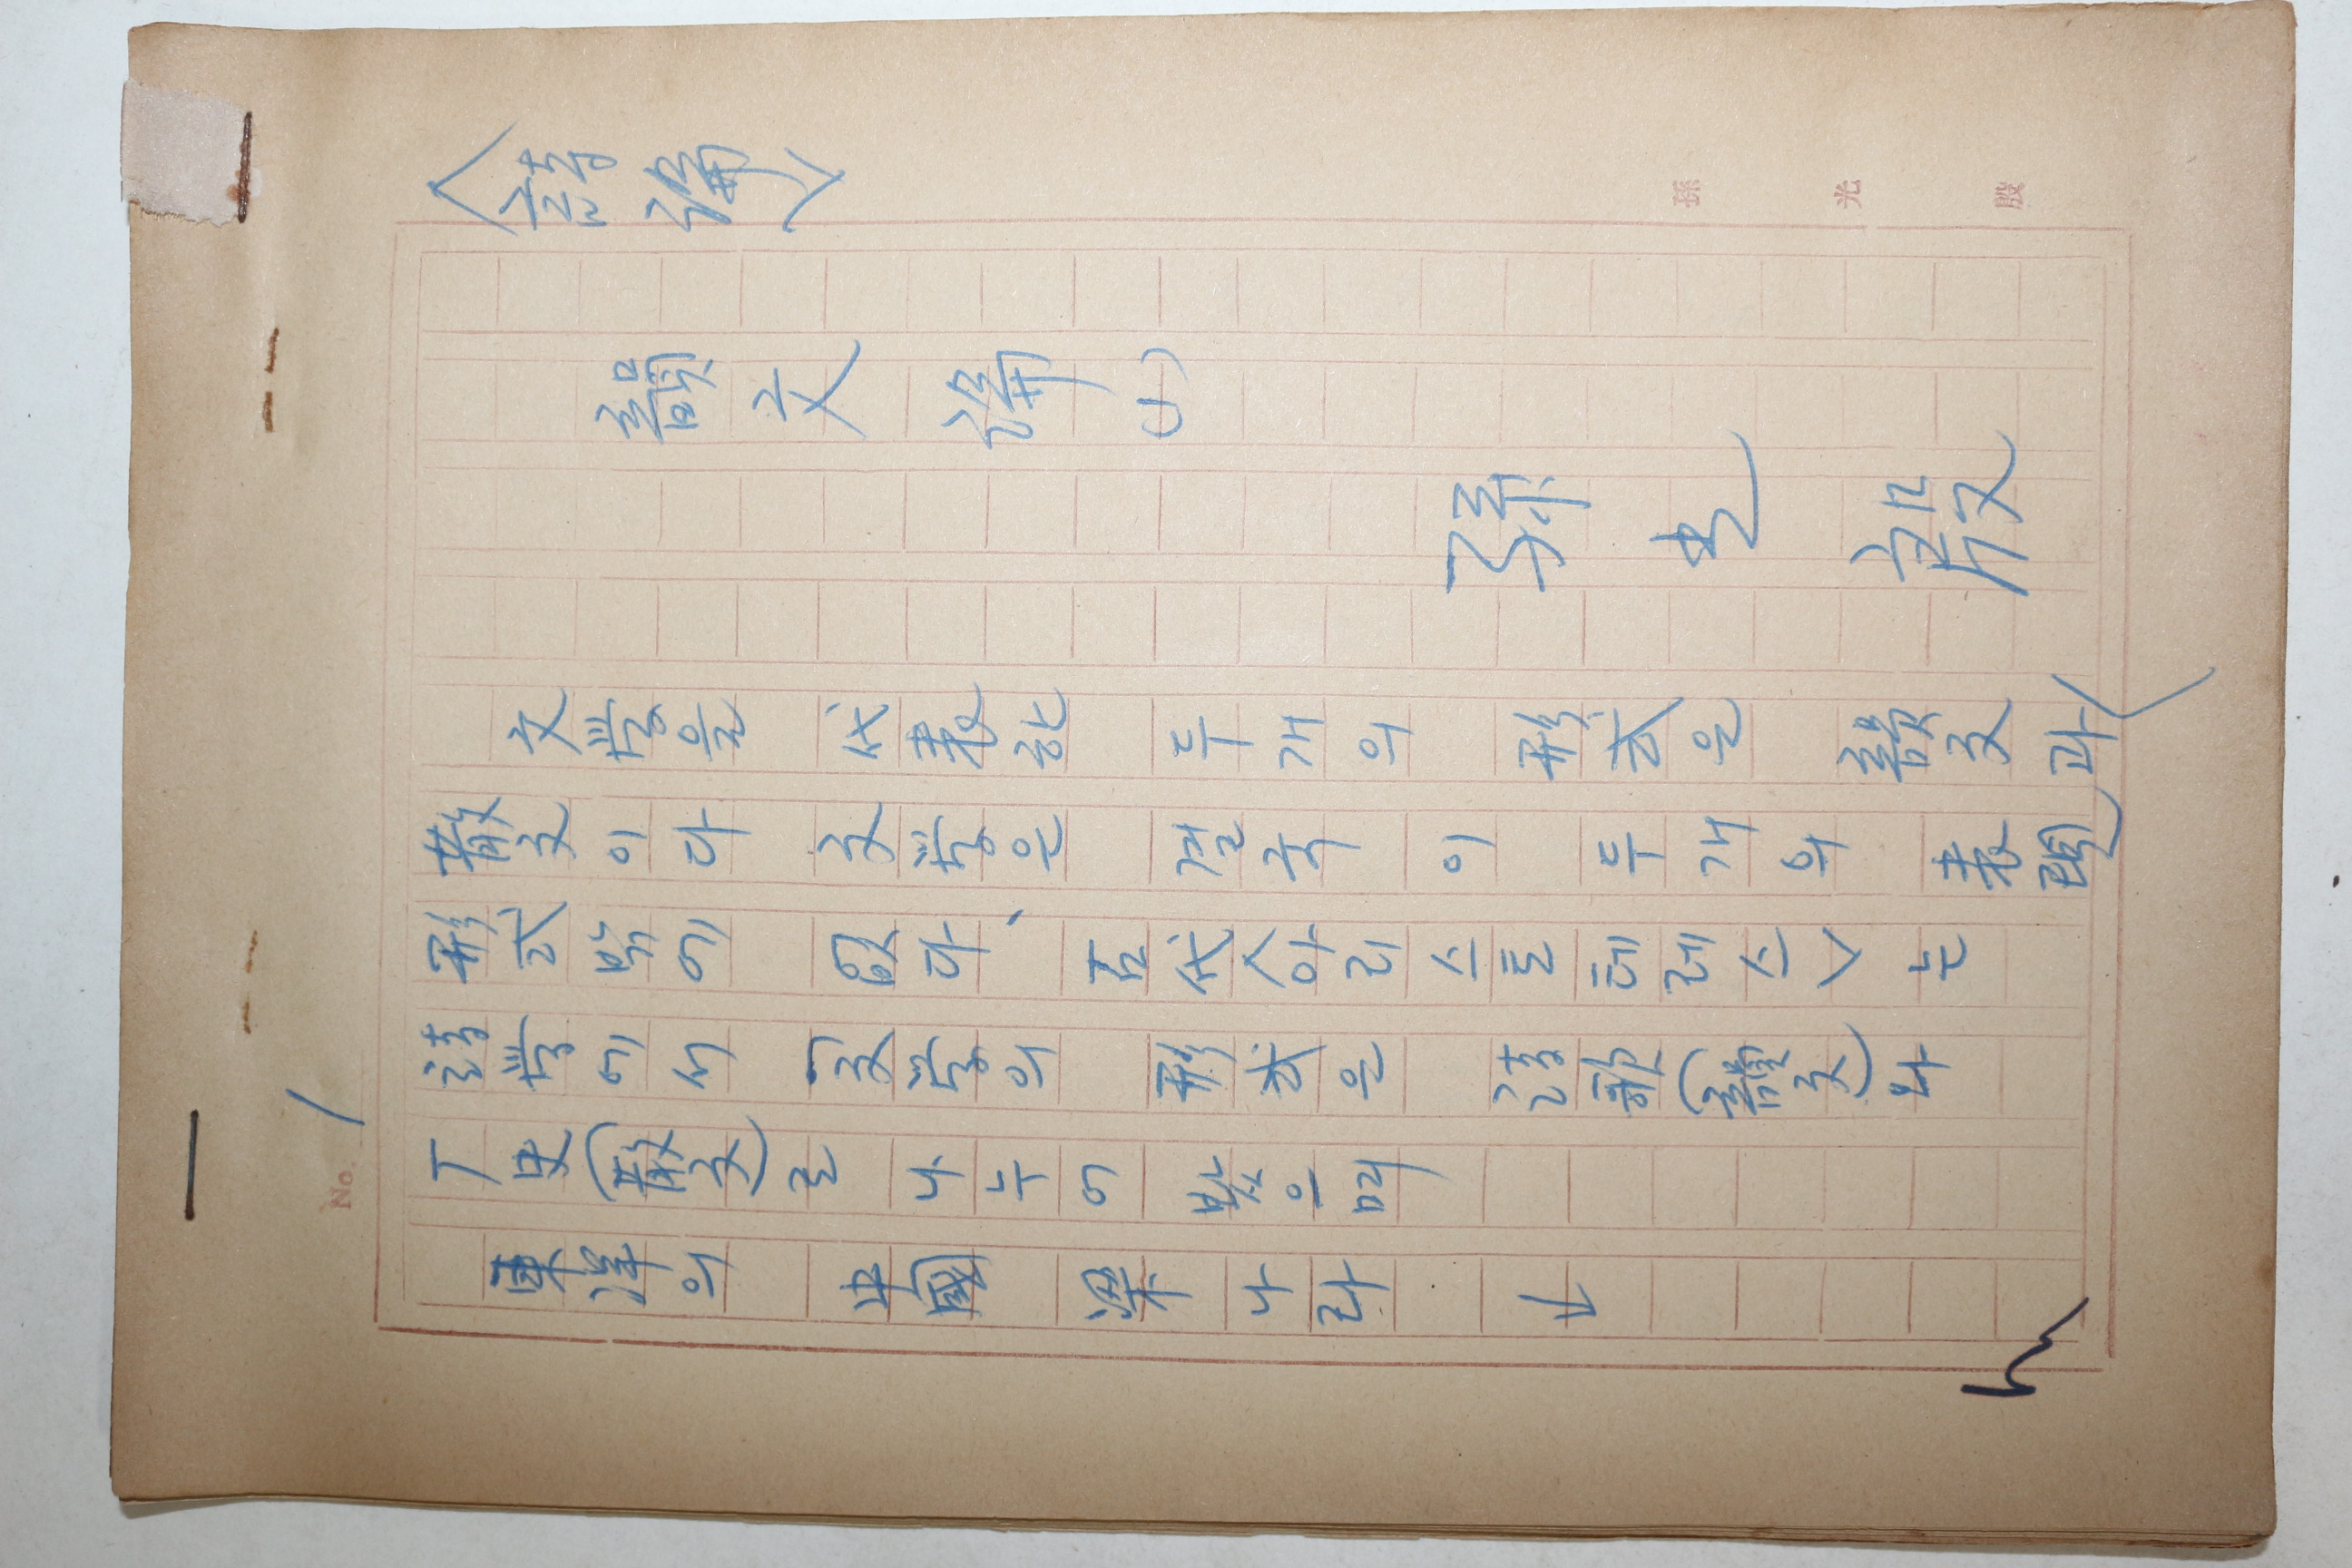 <詩論>
韻文論(1)
孫光殷
文學을 代表한 두개의 形式은 韻文과
散文이다 文學은 결국 이 두개의 表現
形式밖에 없다、古代<아리스토테레스>는
詩學에서 「文學의 形式은 詩歌(韻文)와
丆史(散文)로 나누어 봤으며
東洋의 中國 梁나라
No. 1
孫光殷